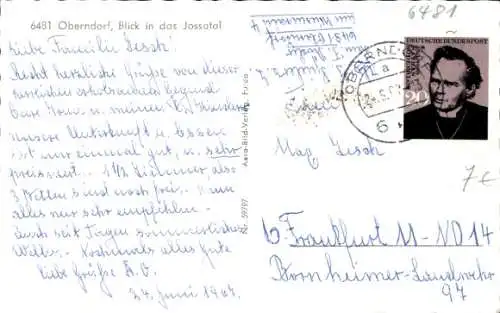 6481 Oberndorf, Blick in das Jossatal
Liebe Familie Lesch!
Recht herzliche Grüße von dieser
herrlichen erholsamen Gegend
Eure Irm. u. meine
unsere Unterkunft u. Essen
ist nur einmal gut, u. sehr
preiswert. 1 1/2 Zimmer also
3 Betten sind noch frei. Kann
alles nur sehr empfehlen
durch seit Tagen sommerliches
Wetter. Nochmals alles Gute
liebe Grüße
24. Juni 1967.
Aero-Bild-Verlag, Fulda
Nr. 59797
6481
6481 Oberndorf
DEUTSCHE BUNDESPOST
20
OBERND
a
6
Mag Lesch
7€
6 Frankfurt M-ND 14
Bornheimer-Landwehr
97